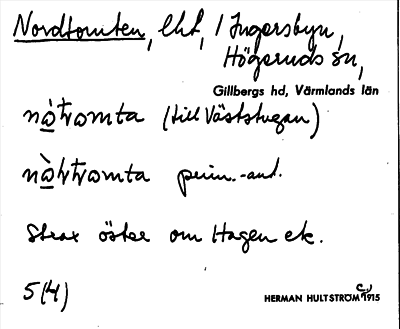 Nordtomten, lht, 1 Ingersbyn,
Högeruds sn,
Gillbergs hd, Värmlands län
nòtromta (till Väststugan)
nòttromta prim.-ant.
Strax öster om Hagen ek.
5(4)
HERMAN HULTSTRÖM 1915